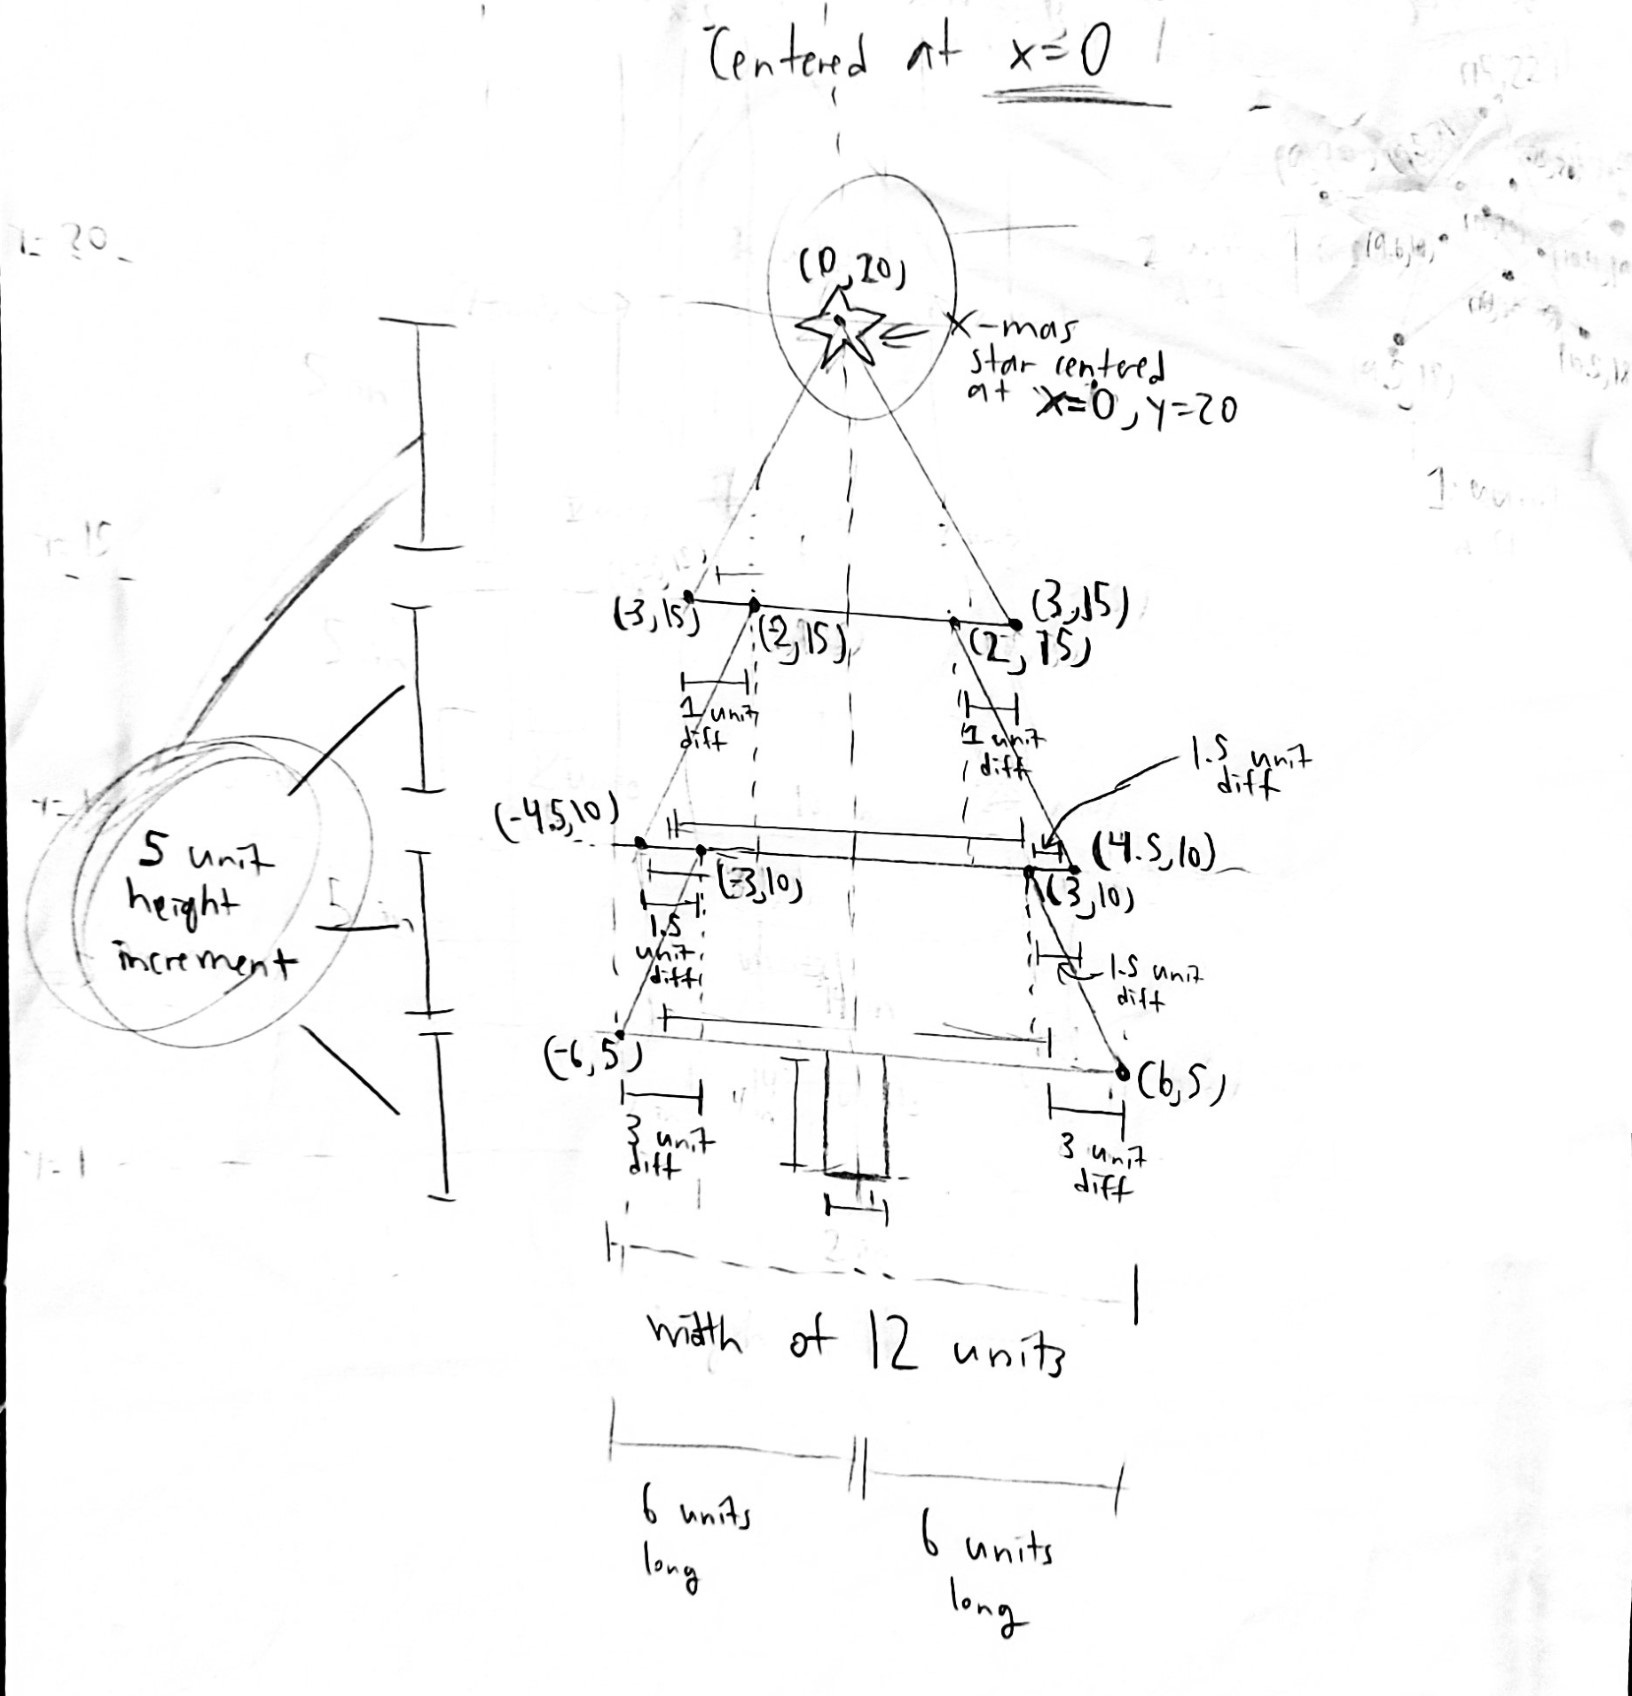 Centered at x=0
(0,20)
X-mas
star centered
at x=0, y=20
(-3,15)
(-2,15)
(2, 15)
(3,15)
1 unit
diff
1 unit
diff
1.5 unit
diff
(-4.5,10)
(-3,10)
(3,10)
(4.5,10)
5 unit
height
increment
1.5
unit
diff
1.5 unit
diff
(-6,5)
(6,5)
3 unit
diff
3 unit
diff
width of 12 units
6 units
long
6 units
long